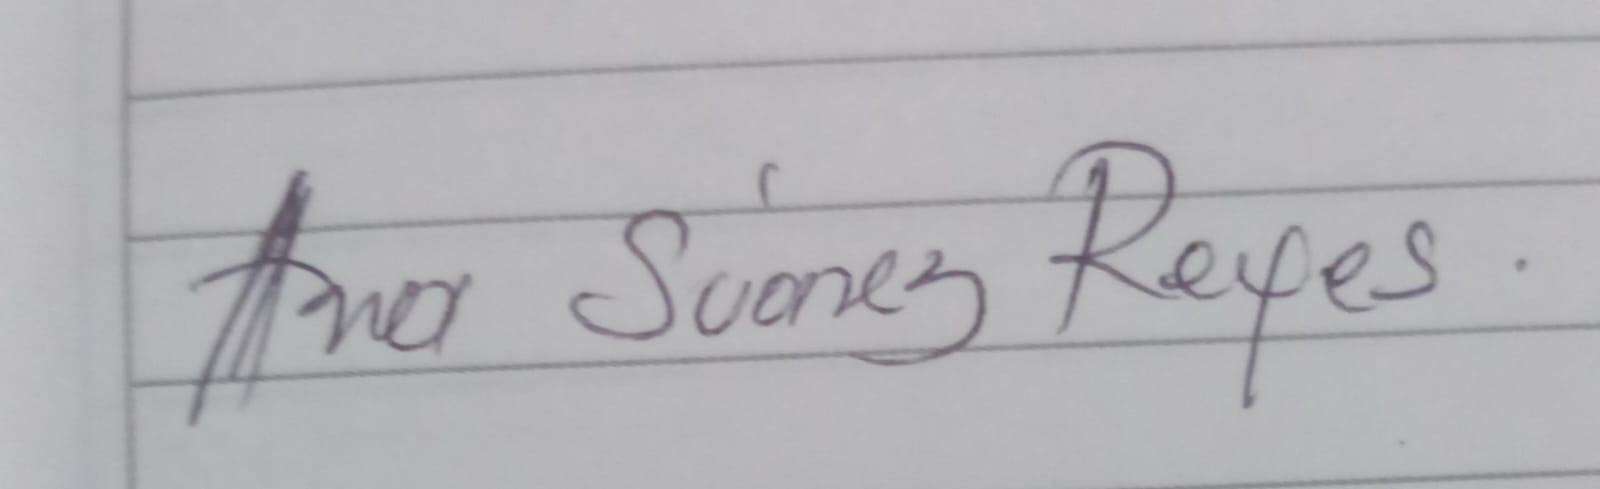 Ana Suárez Reyes.